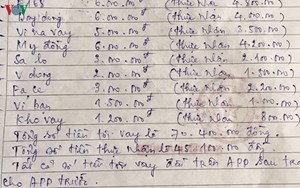 VTV
168 6.000.000đ (thực nhận 4.800.000)
Vay dong 6.000.000đ (thực nhận 4.000.000)
Vi na vay 5.000.000đ (thực nhận 3.500.000)
My đồng 6.000.000đ (thực nhận 4.200.000)
Sa lo 3.000.000đ (thực nhận
V dong 2.000.000đ (thực nhận
Fa ce 3.000.000đ (thực nhận
Vi ban 1.500.000đ (thực nhận
Kho vay 1.200.000đ (thực nhận 800.000)
Tổng số tiền tôi vay là 70.400.000 đồng.
Tổng số tiền thực nhận là 45.100.000 đồng
Tất cả số tiền tôi vay đều trên APP sau trả
cho APP trước.